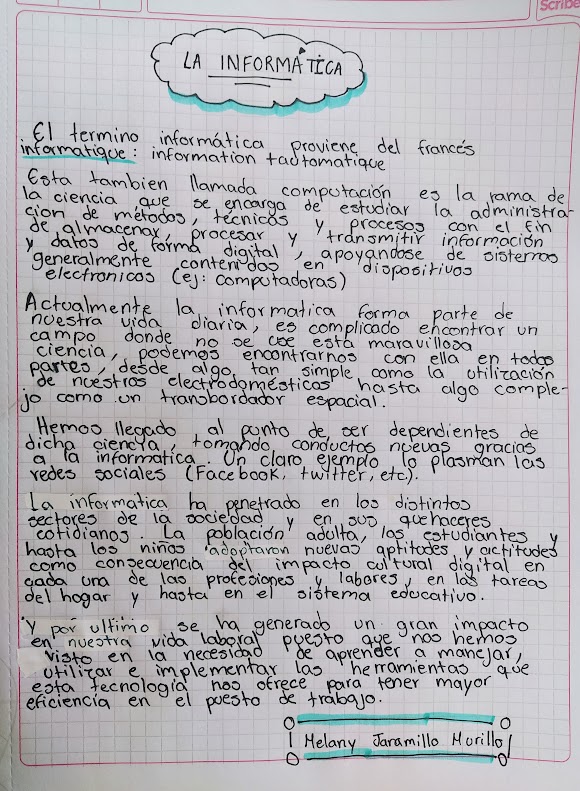 Scribe
LA INFORMÁTICA
El termino informática proviene del francés
informatique: information + automatique
Esta tambien llamada computación es la rama de
la ciencia que se encarga de estudiar la administra-
cion de métodos, técnicas y procesos con el fin
de almacenar, procesar y transmitir información
y datos de forma digital, apoyandose de sistemas
generalmente contenidos en dispositivos
electronicos (ej: computadoras)
Actualmente la informatica forma parte de
nuestra vida diaria, es complicado encontrar un
campo donde no se use esta maravillosa
ciencia, podemos encontrarnos con ella en todas
partes, desde algo tan simple como la utilización
de nuestros electrodomésticos hasta algo comple-
jo como un transbordador espacial.
Hemos llegado al punto de ser dependientes de
dicha ciencia, tomando conductas nuevas gracias
a la informatica. Un claro ejemplo lo plasman las
redes sociales (Facebook, twitter, etc).
La informatica ha penetrado en los distintos
sectores de la sociedad y en sus quehaceres
cotidianos. La población adulta, los estudiantes y
hasta los niños adoptaron nuevas aptitudes y actitudes
como consecuencia del impacto cultural digital en
cada una de las profesiones y labores, en las tareas
del hogar y hasta en el sistema educativo.
Y por ultimo se ha generado un gran impacto
en nuestra vida laboral puesto que nos hemos
visto en la necesidad de aprender a manejar,
utilizar e implementar las herramientas que
esta tecnología nos ofrece para tener mayor
eficiencia en el puesto de trabajo.
Melany Jaramillo Morillo